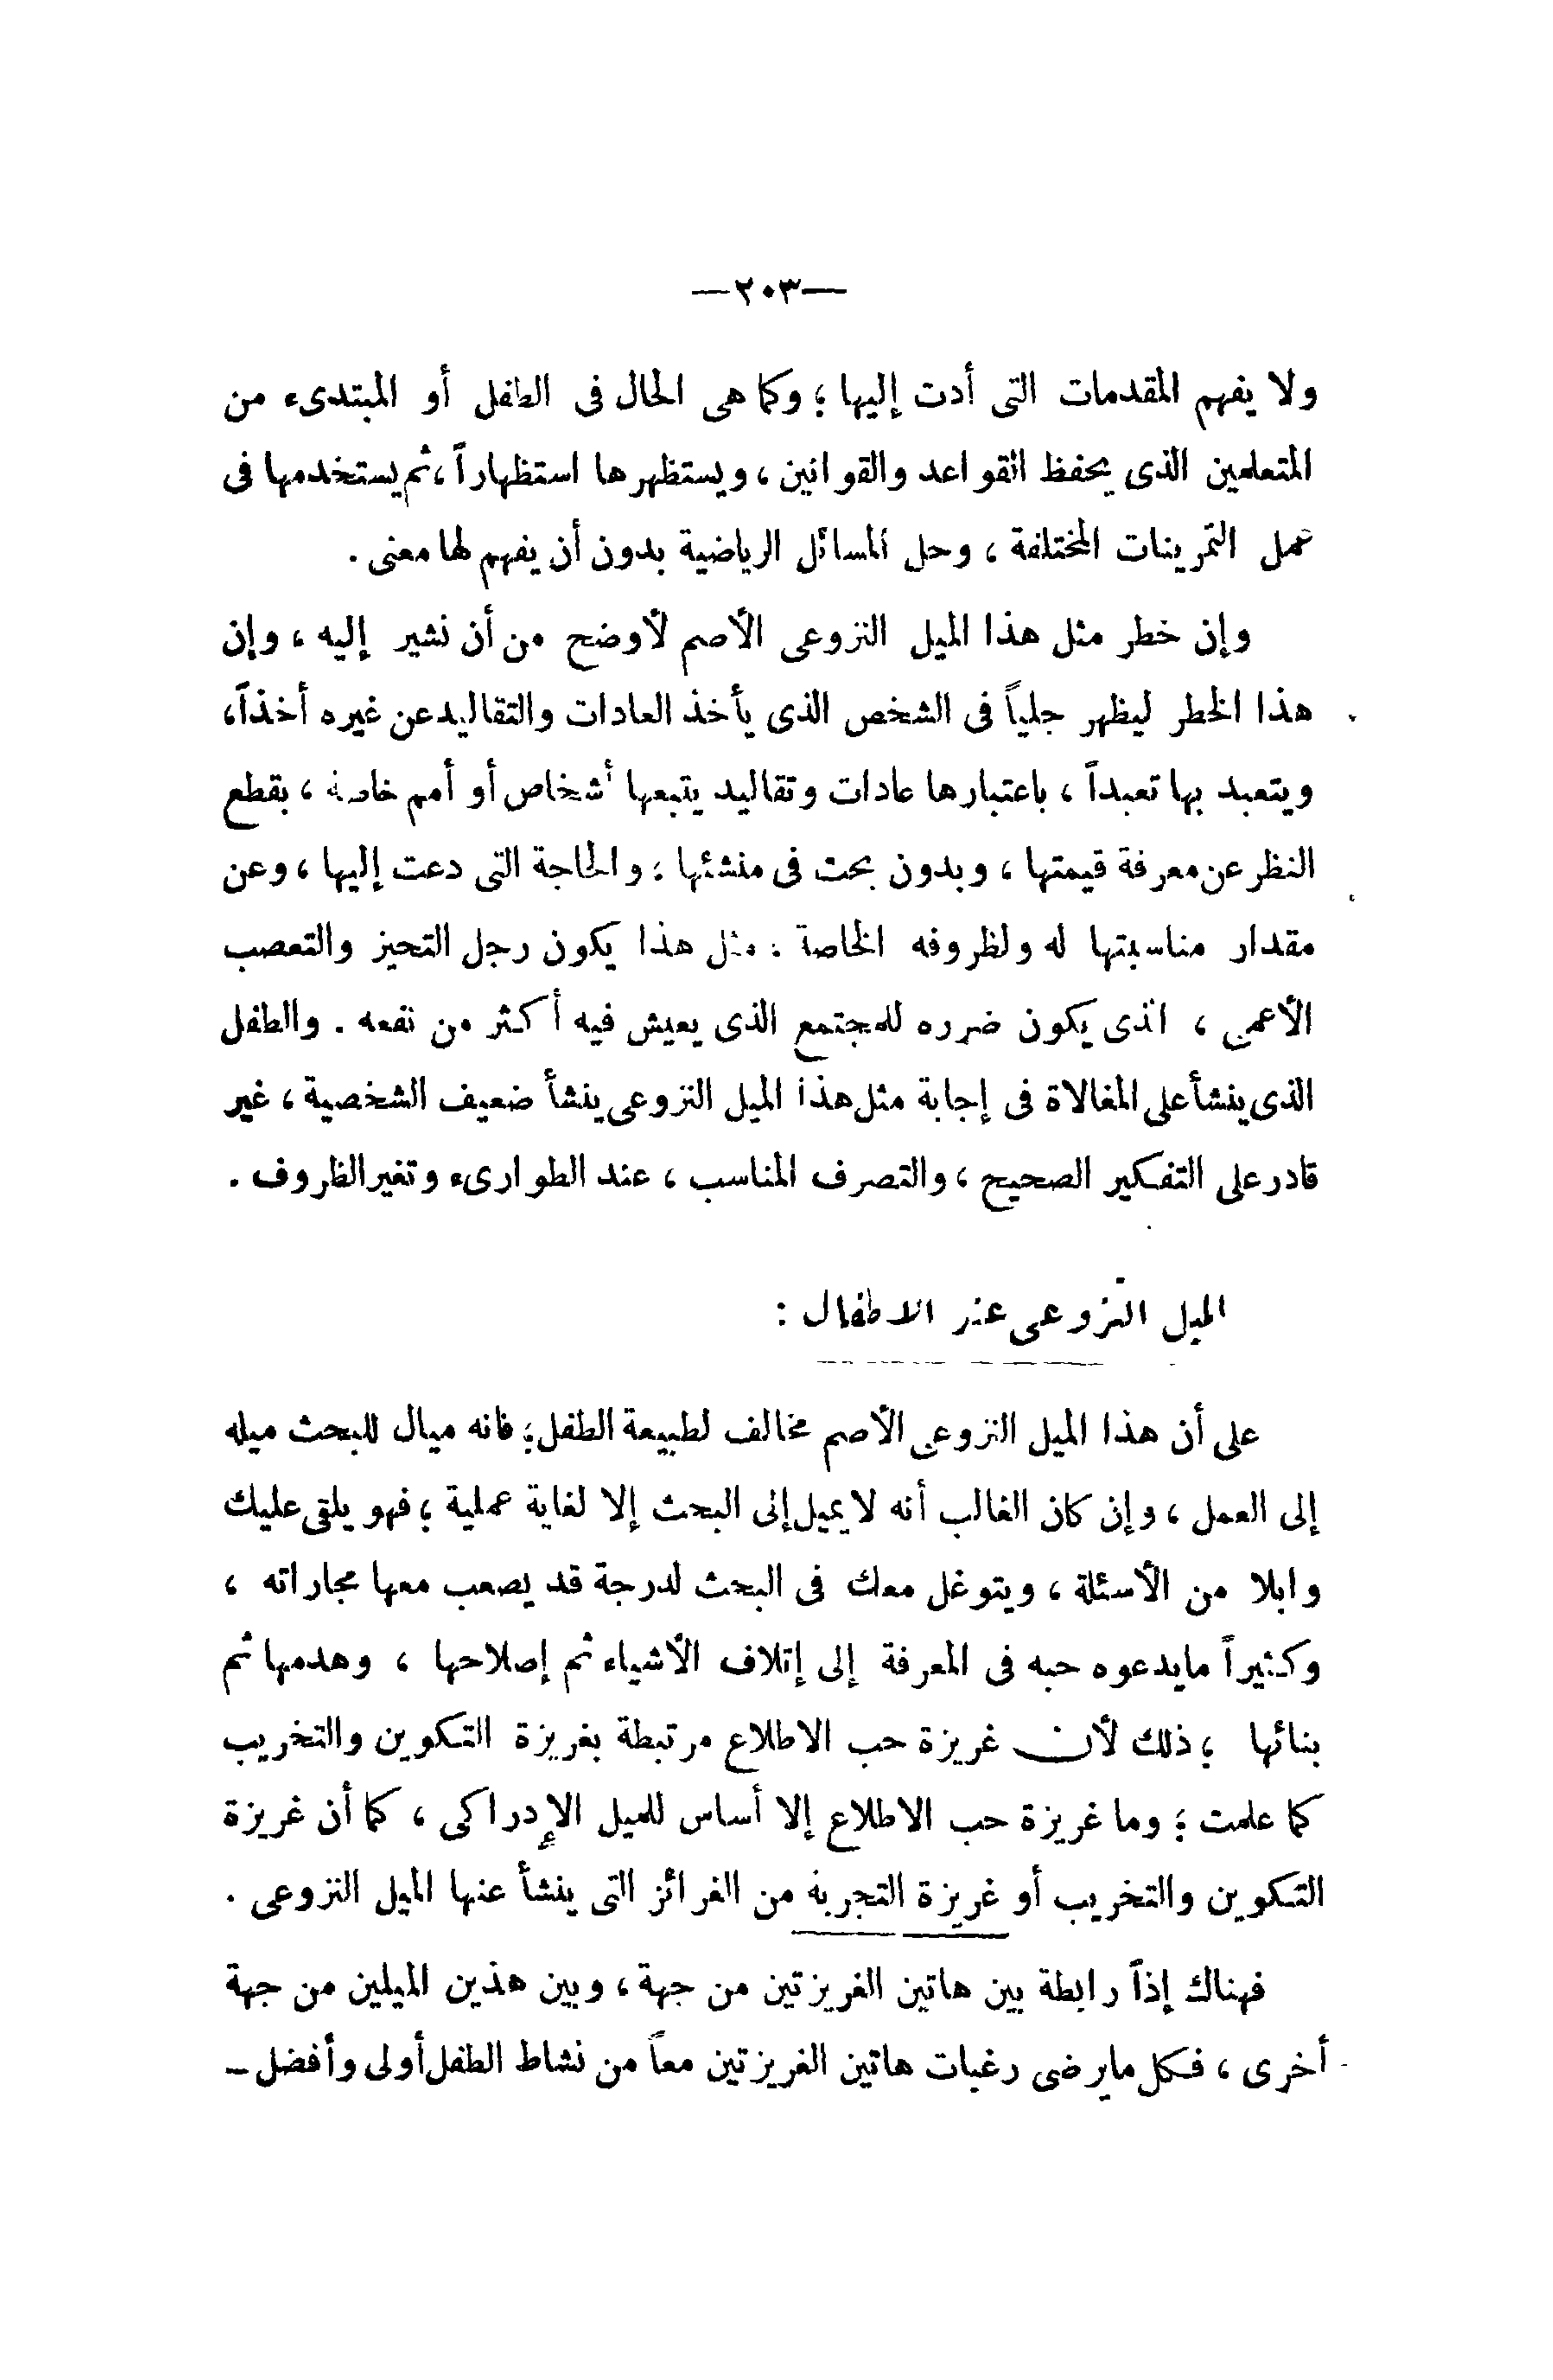 —٢٠٣—
ولا يفهم المقدمات التى أدت إليها ؛ وكما هى الحال فى الطفل أو المبتدىء من
المتعلمين الذى يحفظ القواعد والقوانين ، ويستظهرها استظهاراً ، ثم يستخدمها فى
عمل التمرينات المختلفة ، وحل المسائل الرياضية بدون أن يفهم لها معنى .
وإن خطر مثل هذا الميل النزوعى الأصم لأوضح من أن نشير إليه ، وإن
هذا الخطر ليظهر جلياً فى الشخص الذى يأخذ العادات والتقاليد عن غيره أخذاً ،
ويتعبد بها تعبداً ، باعتبارها عادات وتقاليد يتبعها أشخاص أو أمم خاصة ، بقطع
النظر عن معرفة قيمتها ، وبدون بحث فى منشئها ؛ والحاجة التى دعت إليها ، وعن
مقدار مناسبتها له ولظروفه الخاصة : مثل هذا يكون رجل التحيز والتعصب
الأعمى ، الذى يكون ضرره للمجتمع الذى يعيش فيه أكثر من نفعه . والطفل
الذى ينشأ على المغالاة فى إجابة مثل هذا الميل النزوعى ينشأ ضعيف الشخصية ، غير
قادر على التفكير الصحيح ، والتصرف المناسب ، عند الطوارىء وتغير الظروف .
الميل النزوعى عند الاطفال :
على أن هذا الميل النزوعى الأصم مخالف لطبيعة الطفل ؛ فانه ميال للبحث ميله
إلى العمل ، وإن كان الغالب أنه لا يميل إلى البحث إلا لغاية عملية ؛ فهو يلقى عليك
وابلا من الأسئلة ، ويتوغل معك فى البحث لدرجة قد يصعب معها مجاراته ،
وكثيراً مايدعوه حبه فى المعرفة إلى إتلاف الأشياء ثم إصلاحها ، وهدمها ثم
بنائها ؛ ذلك لأن غريزة حب الاطلاع مرتبطة بغريزة التكوين والتخريب
كما علمت ؛ وما غريزة حب الاطلاع إلا أساس للميل الإدراكى ، كما أن غريزة
التكوين والتخريب أو غريزة التجربة من الغرائز التى ينشأ عنها الميل النزوعى .
فهناك إذاً رابطة بين هاتين الغريزتين من جهة ، وبين هذين الميلين من جهة
أخرى ، فكل مايرضى رغبات هاتين الغريزتين معاً من نشاط الطفل أولى وأفضل –